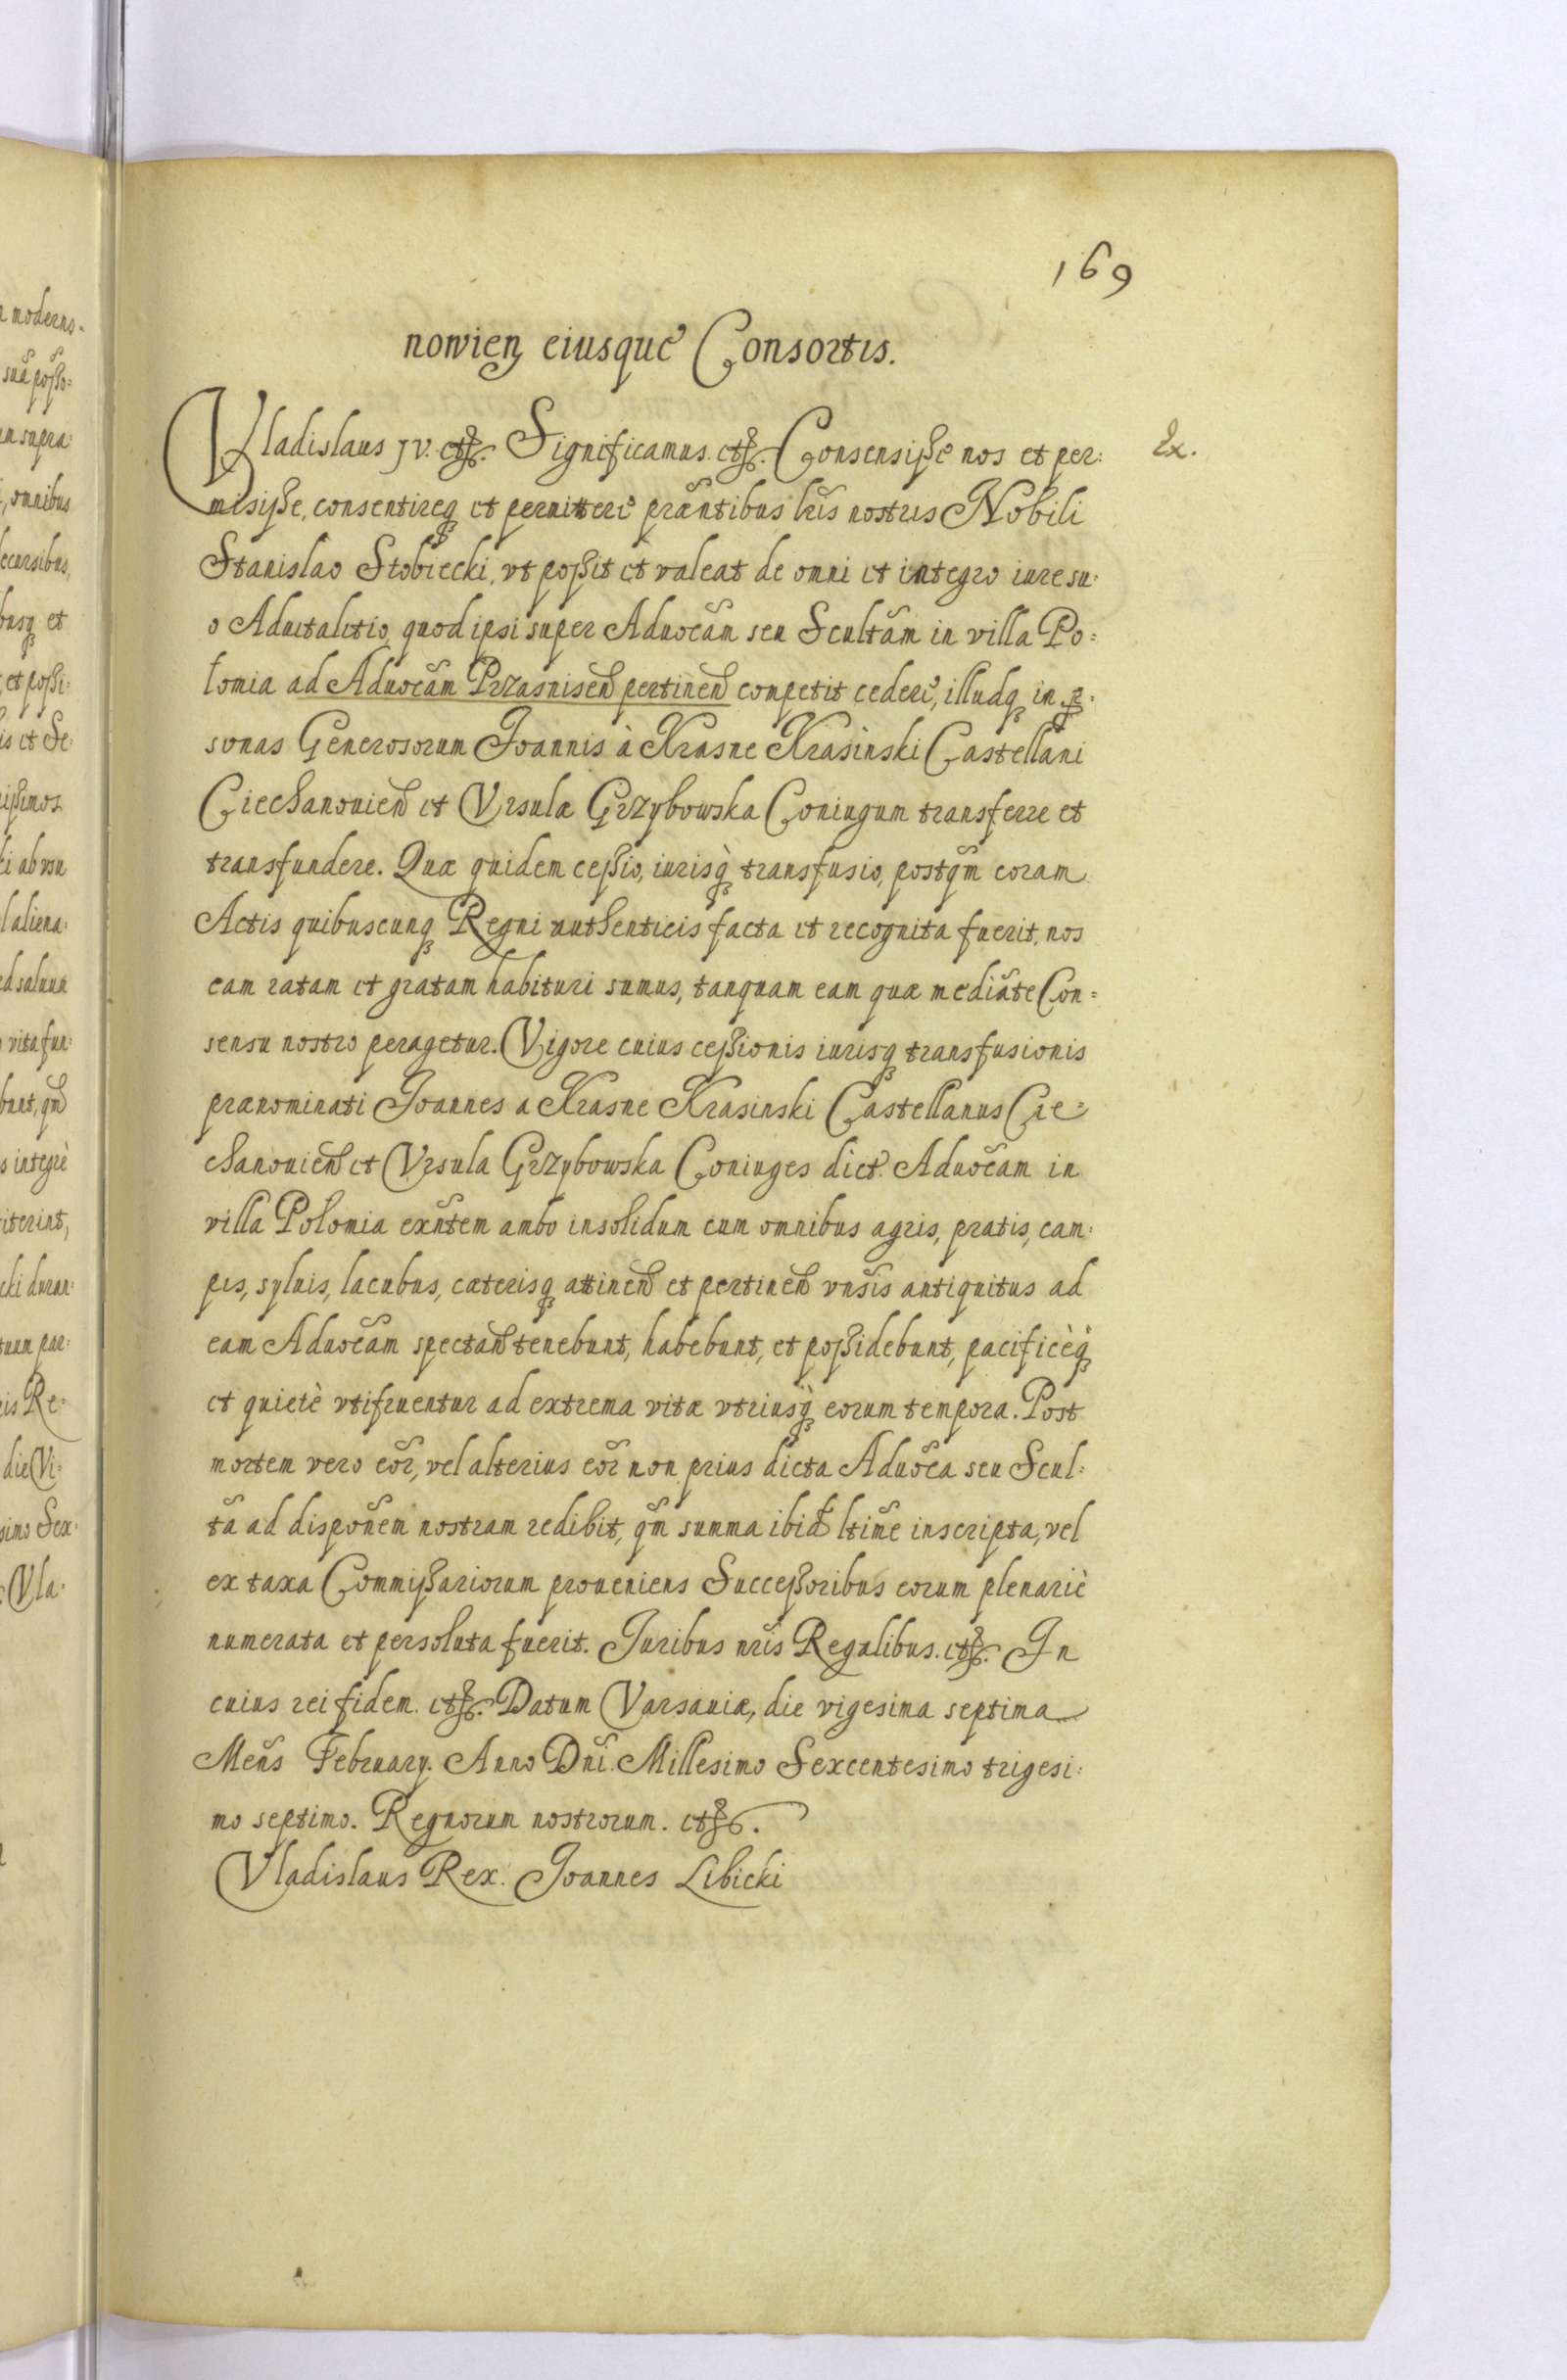 169
nowien eiusque Consortis.
Vladislaus IV. etc. Significamus. etc. Consensisse nos et per: Ex.
misisse, consentireq et permittere præntibus lris nostris Nobili
Stanislao Stobiecki, vt possit et valeat de omni et integro iure su:
o Aduitalitio, quod ipsi super Aduocãm seu Scultãm in villa Po:
lomia ad Aduocãm Przasnisen pertinen competit cedere, illudq in p:
sonas Generosorum Joannis à Krasne Krasinski Castellani
Ciechanouien et Vrsulæ Grzybowska Coniugum transferre et
transfundere. Quæ quidem cessio, iurisq transfusio, postqm coram
Actis quibuscunq Regni authenticis facta et recognita fuerit, nos
eam ratam et gratam habituri sumus, tanquam eam quæ mediãte Con:
sensu nostro peragetur. Vigore cuius cessionis iurisq transfusionis
prænominati Joannes a Krasne Krasinski Castellanus Cie:
chanouien et Vrsula Grzybowska Coniuges dict. Aduocãm in
villa Polomia exñtem ambo insolidum cum omnibus agris, pratis, cam:
pis, syluis, lacubus, cæterisq attinen et pertinen vnsis antiquitus ad
eam Aduocãm spectan tenebunt, habebunt, et possidebunt, pacificèq
et quietè vtifruentur ad extrema vitæ vtriusq eorum tempora. Post
mortem vero eor, vel alterius eor non prius dicta Aduoca seu Scul:
tã ad disponem nostram redibit, qm summa ibid ltime inscripta, vel
ex taxa Commissariorum proueniens Successoribus eorum plenariè
numerata et persoluta fuerit. Juribus nris Regalibus. etc. In
cuius rei fidem. etc. Datum Varsauiæ, die vigesima septima
Mens February. Anno Dni. Millesimo Sexcentesimo trigesi:
mo septimo. Regnorum nostrorum. etc.
Vladislaus Rex. Joannes Libicki